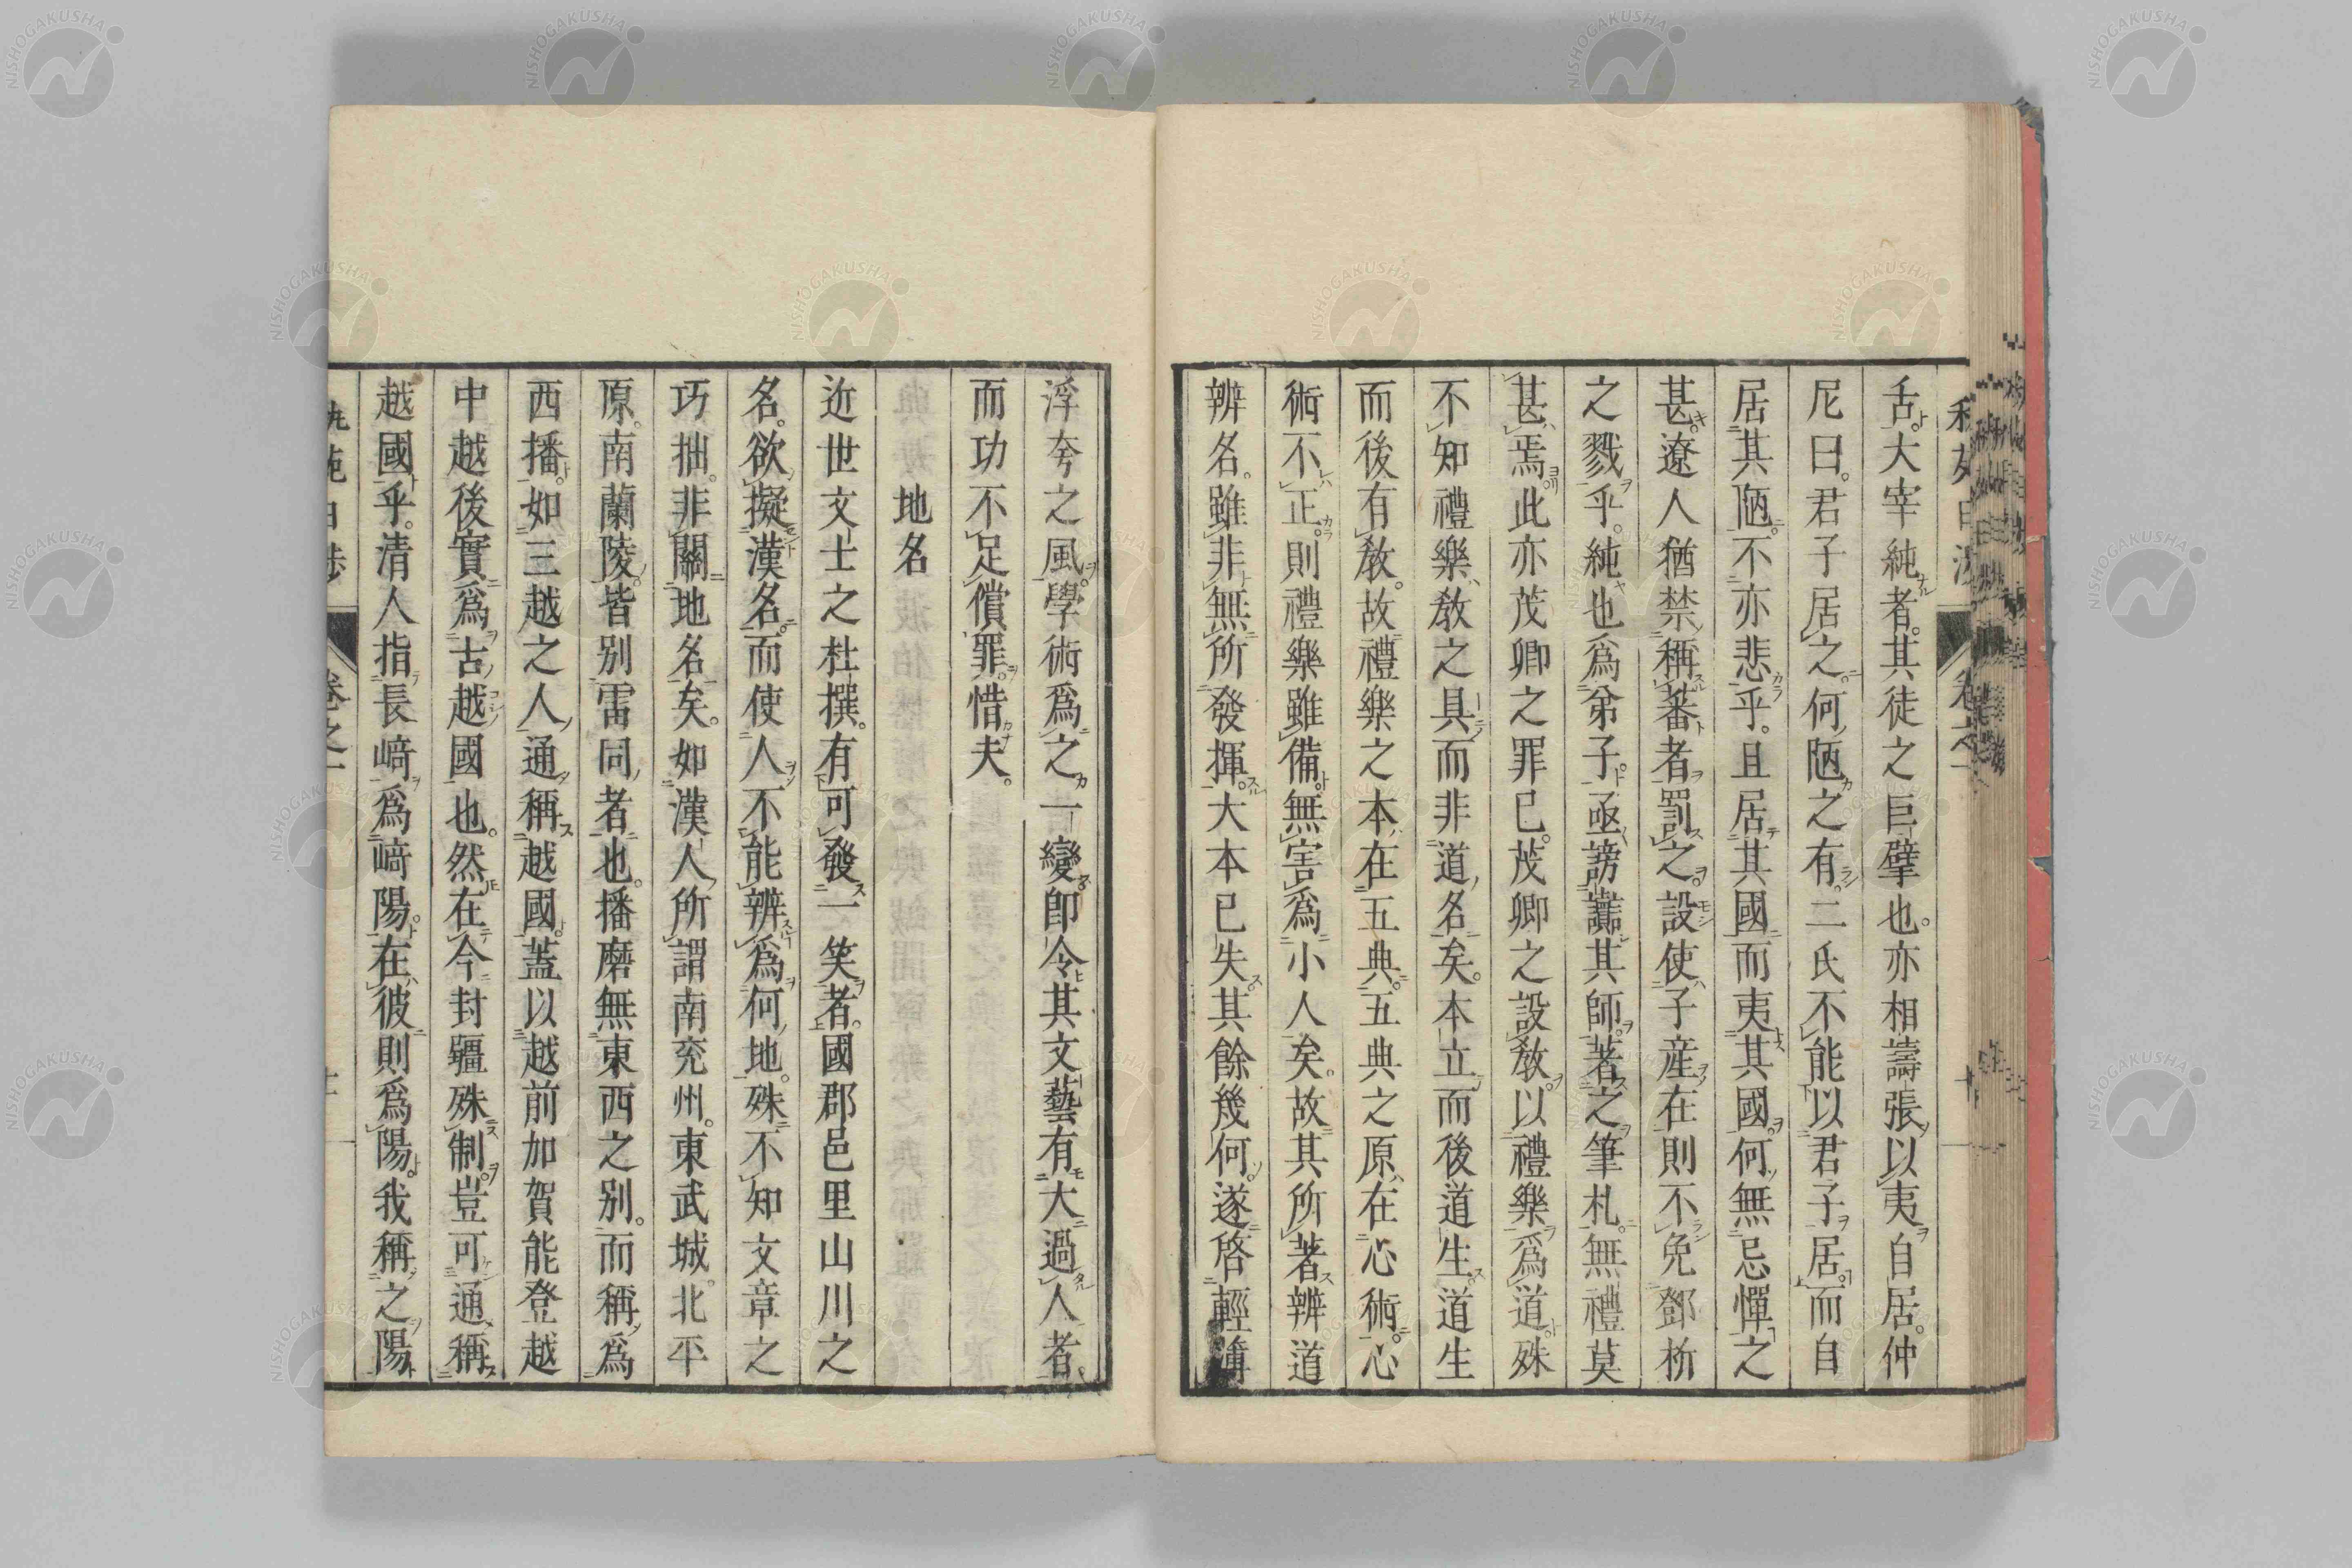 舌。大宰純者。其徒之巨擘也。亦相譸張以夷自居。仲
尼曰。君子居之。何陋之有。二氏不能以君子居。而自
居其陋。不亦悲乎。且居其國而夷其國。何無忌憚之
甚。遼人猶禁稱蕃者罰之。設使子産在則不免鄧析
之戮乎。純也爲弟子。亟謗讟其師。著之筆札。無禮莫
甚焉。此亦茂卿之罪已。茂卿之設敎。以禮樂爲道。殊
不知禮樂敎之具而非道名矣。本立而後道生。道生
而後有敎。故禮樂之本在五典。五典之原在心術。心
術不正。則禮樂雖備。無害爲小人矣。故其所著辨道
辨名。雖非無所發揮。大本已失其餘幾何。遂啓輕薄
浮夸之風。學術爲之一變。卽令其文藝有大過人者。
而功不足償罪。惜夫。
地名
近世文士之杜撰。有可發一笑者。國郡邑里山川之
名。欲擬漢名。而使人不能辨爲何地。殊不知文章之
巧拙。非關地名矣。如漢人所謂南兗州。東武城。北平
原。南蘭陵。皆別雷同者也。播磨無東西之別。而稱爲
西播。如三越之人通稱越國。蓋以越前加賀能登越
中越後實爲古越國也。然在今封疆殊制。豈可通稱
越國乎。清人指長﨑爲﨑陽。在彼則爲陽。我稱之陽
卷之一
NISHOGAKUSHA